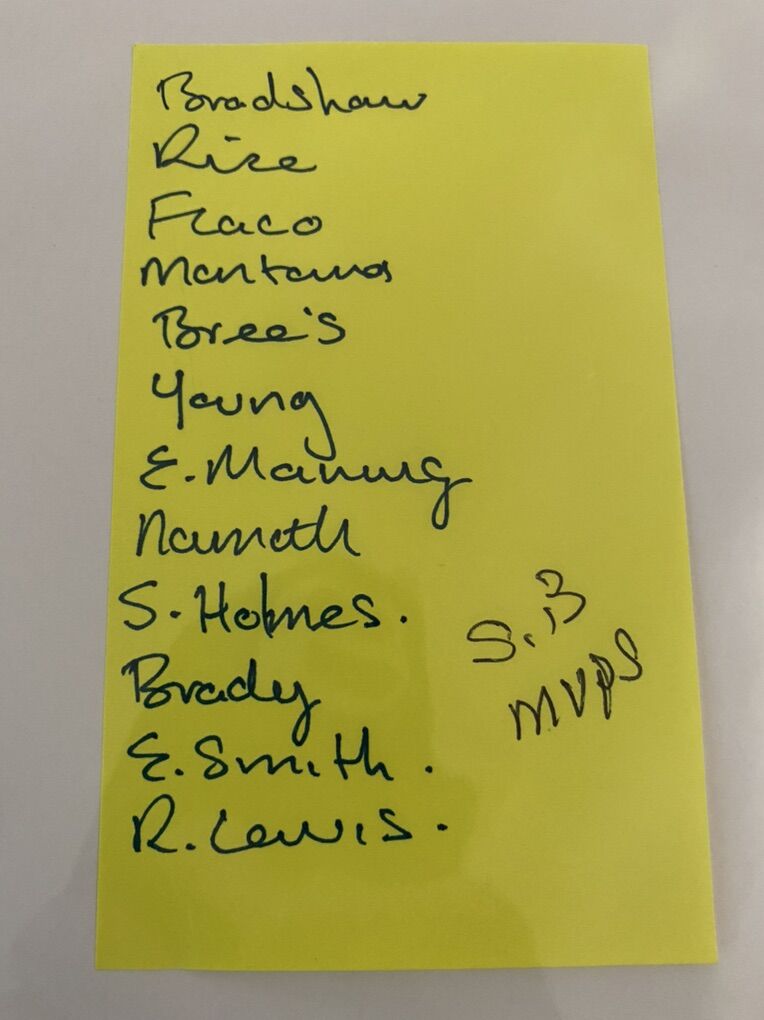 Bradshaw
Rice
Flaco
Montana
Bree's
Young
E. Manning
Nameth
S. Holmes.
Brady
E. Smith.
R. Lewis.
S.B
MVPS